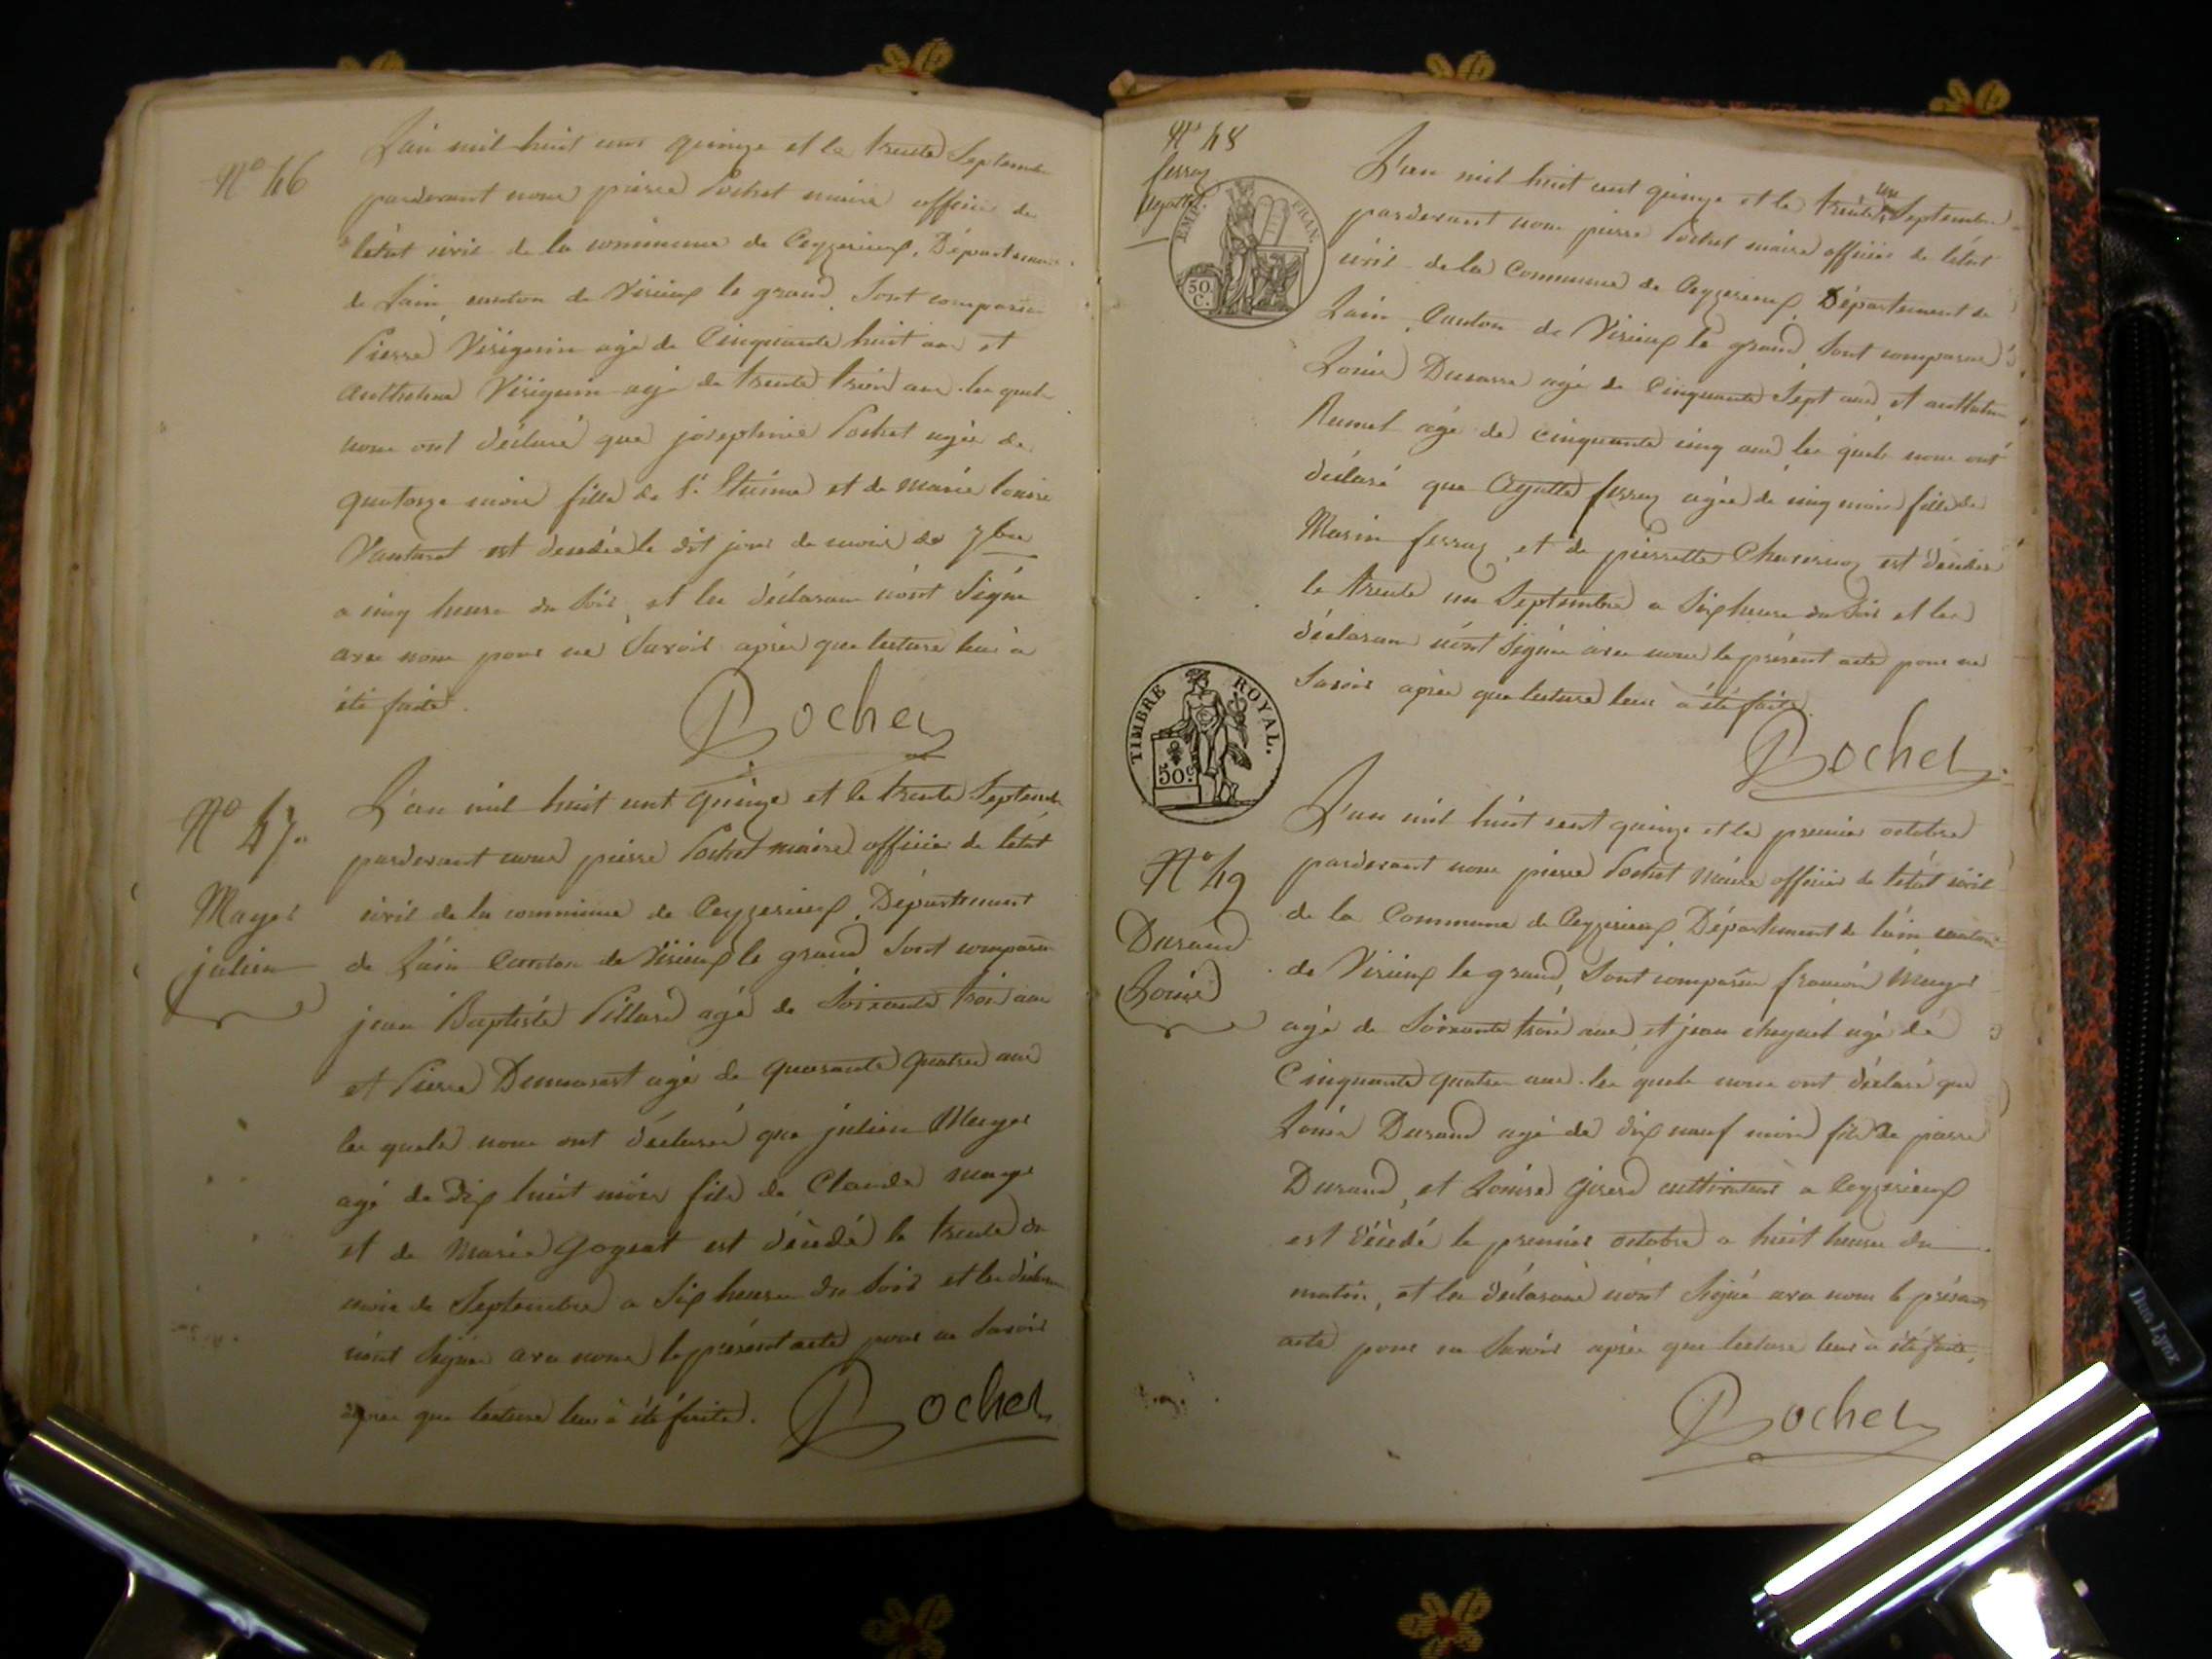 Nº 46
L'an mil huit cent quinze et le trente Septembre
pardevant nous pierre Pochet maire officier de
l'état civil de la commune de Ceyzerieux, Département
de Lain, canton de Virieux le grand, Sont comparu
Pierre Virignin agé de Cinquante huit ans et
Anthelme Virignin agé de trente trois ans les quels
nous ont déclaré que josephine Pochet agée de
quatorze mois fille de St. Etienne et de Marie louise
Vauturet est décédée le dit jour du mois de 7bre
a cinq heure du Soir, et les déclarans n'ont Signé
avec nous pour ne Savoir après que lecture leur a
été faite.
Pochet
Nº 47.
Mayer
julien
L'an mil huit cent quinze et le trente Septembre
pardevant nous pierre Pochet maire officier de l'état
civil de la commune de Ceyzerieux, Département
de Lain Canton de Virieux le grand Sont comparu
jean Baptiste Pillard agé de Soixante trois ans
et Pierre Dumarest agé de quarante quatre ans
les quels nous ont déclaré que julien Mayer
agé de dix huit mois fils de Claude maye
et de Marie Gogeat est décédé le trente du
mois de Septembre a Six heures du Soir et les déclarans
n'ont Signé avec nous le présent acte pour ne Savoir
après que lecture leur à été faite.
Pochet
Nº 48
ferroz
agatte
EMP. FRAN.
50.
C.
L'an mil huit cent quinze et le trente un Septembre
pardevant nous pierre Pochet maire officier de l'état
civil de la Commune de Ceyzerieux, Département de
Lain, Canton de Virieux le grand Sont comparu
Louis Ducarre agé de Cinquante Sept ans, et anthelme
Rumet agé de cinquante cinq ans les quels nous ont
déclaré que Agatte ferroz agée de cinq mois fille de
Marin ferroz, et de pierrette Chaveriaz est décédée
le trente un Septembre a Six heures du Soir et les
déclarans n'ont Signé avec nous le présent acte pour ne
Savoir après que lecture leur à été faite.
Pochet
TIMBRE ROYAL.
50c.
Nº 49
Durand
Louis
L'an mil huit cent quinze et le premier octobre
pardevant nous pierre Pochet Maire officier de l'état civil
de la Commune de Ceyzerieux, Département de l'ain canton
de Virieux le grand, Sont comparu francois Mayer
agé de Soixante trois ans, et jean chapuis agé de
Cinquante quatre ans. les quels nous ont déclaré que
Louis Durand agé de dix neuf mois fils de pierre
Durand, et Louise Girerd cultivateurs a Ceyzerieux
est décédé le premier octobre a huit heures du
matin, et les déclarans n'ont Signé avec nous le présent
acte pour ne Savoir après que lecture leur à été faite.
Pochet
Due Lynx